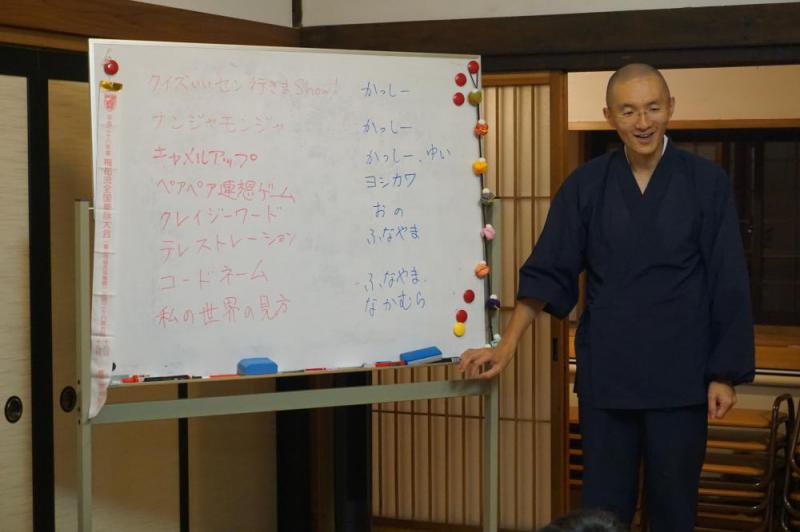 クイズいいセン行きまShow! かっしー
ナンジャモンジャ かっしー
キャメルアップ かっしー、ゆい
ペアペア連想ゲーム ヨシカワ
クレイジーワード おの
テレストレーション ふなやま
コードネーム ふなやま
私の世界の見方 なかむら
梅花流全国奉詠大会